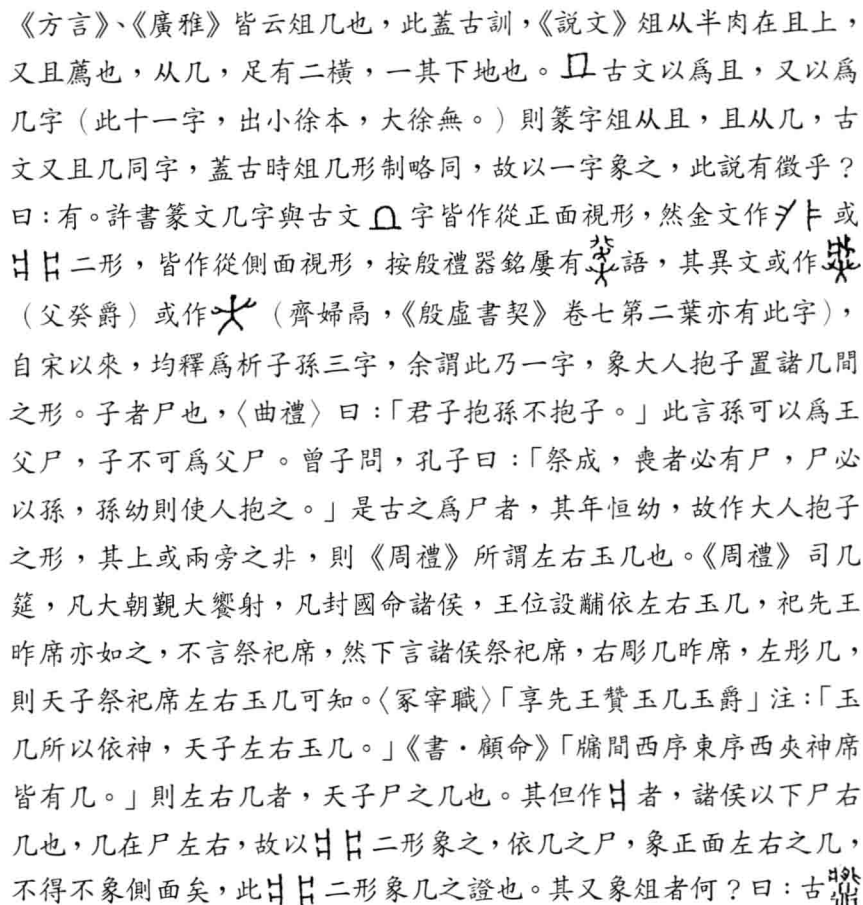 《方言》、《廣雅》皆云俎几也，此蓋古訓，《説文》俎从半肉在且上，
又且薦也，从几，足有二橫，一其下地也。古文以爲且，又以爲
几字（此十一字，出小徐本，大徐無。）則篆字俎从且，且从几，古
文又且几同字，蓋古時俎几形制略同，故以一字象之，此説有徵乎？
曰：有。許書篆文几字與古文字皆作從正面視形，然金文作或
二形，皆作從側面視形，按殷禮器銘屢有語，其異文或作
（父癸爵）或作（齊婦鬲，《殷虛書契》卷七第二葉亦有此字），
自宋以來，均釋爲析子孫三字，余謂此乃一字，象大人抱子置諸几間
之形。子者尸也，〈曲禮〉曰：「君子抱孫不抱子。」此言孫可以爲王
父尸，子不可爲父尸。曾子問，孔子曰：「祭成，喪者必有尸，尸必
以孫，孫幼則使人抱之。」是古之爲尸者，其年恒幼，故作大人抱子
之形，其上或兩旁之非，則《周禮》所謂左右玉几也。《周禮》司几
筵，凡大朝覲大饗射，凡封國命諸侯，王位設黼依左右玉几，祀先王
昨席亦如之，不言祭祀席，然下言諸侯祭祀席，右彫几昨席，左彤几，
則天子祭祀席左右玉几可知。〈冢宰職〉「享先王贊玉几玉爵」注：「玉
几所以依神，天子左右玉几。」《書·顧命》「牖間西序東序西夾神席
皆有几。」則左右几者，天子尸之几也。其但作者，諸侯以下尸右
几也，几在尸左右，故以二形象之，依几之尸，象正面左右之几，
不得不象側面矣，此二形象几之證也。其又象俎者何？曰：古